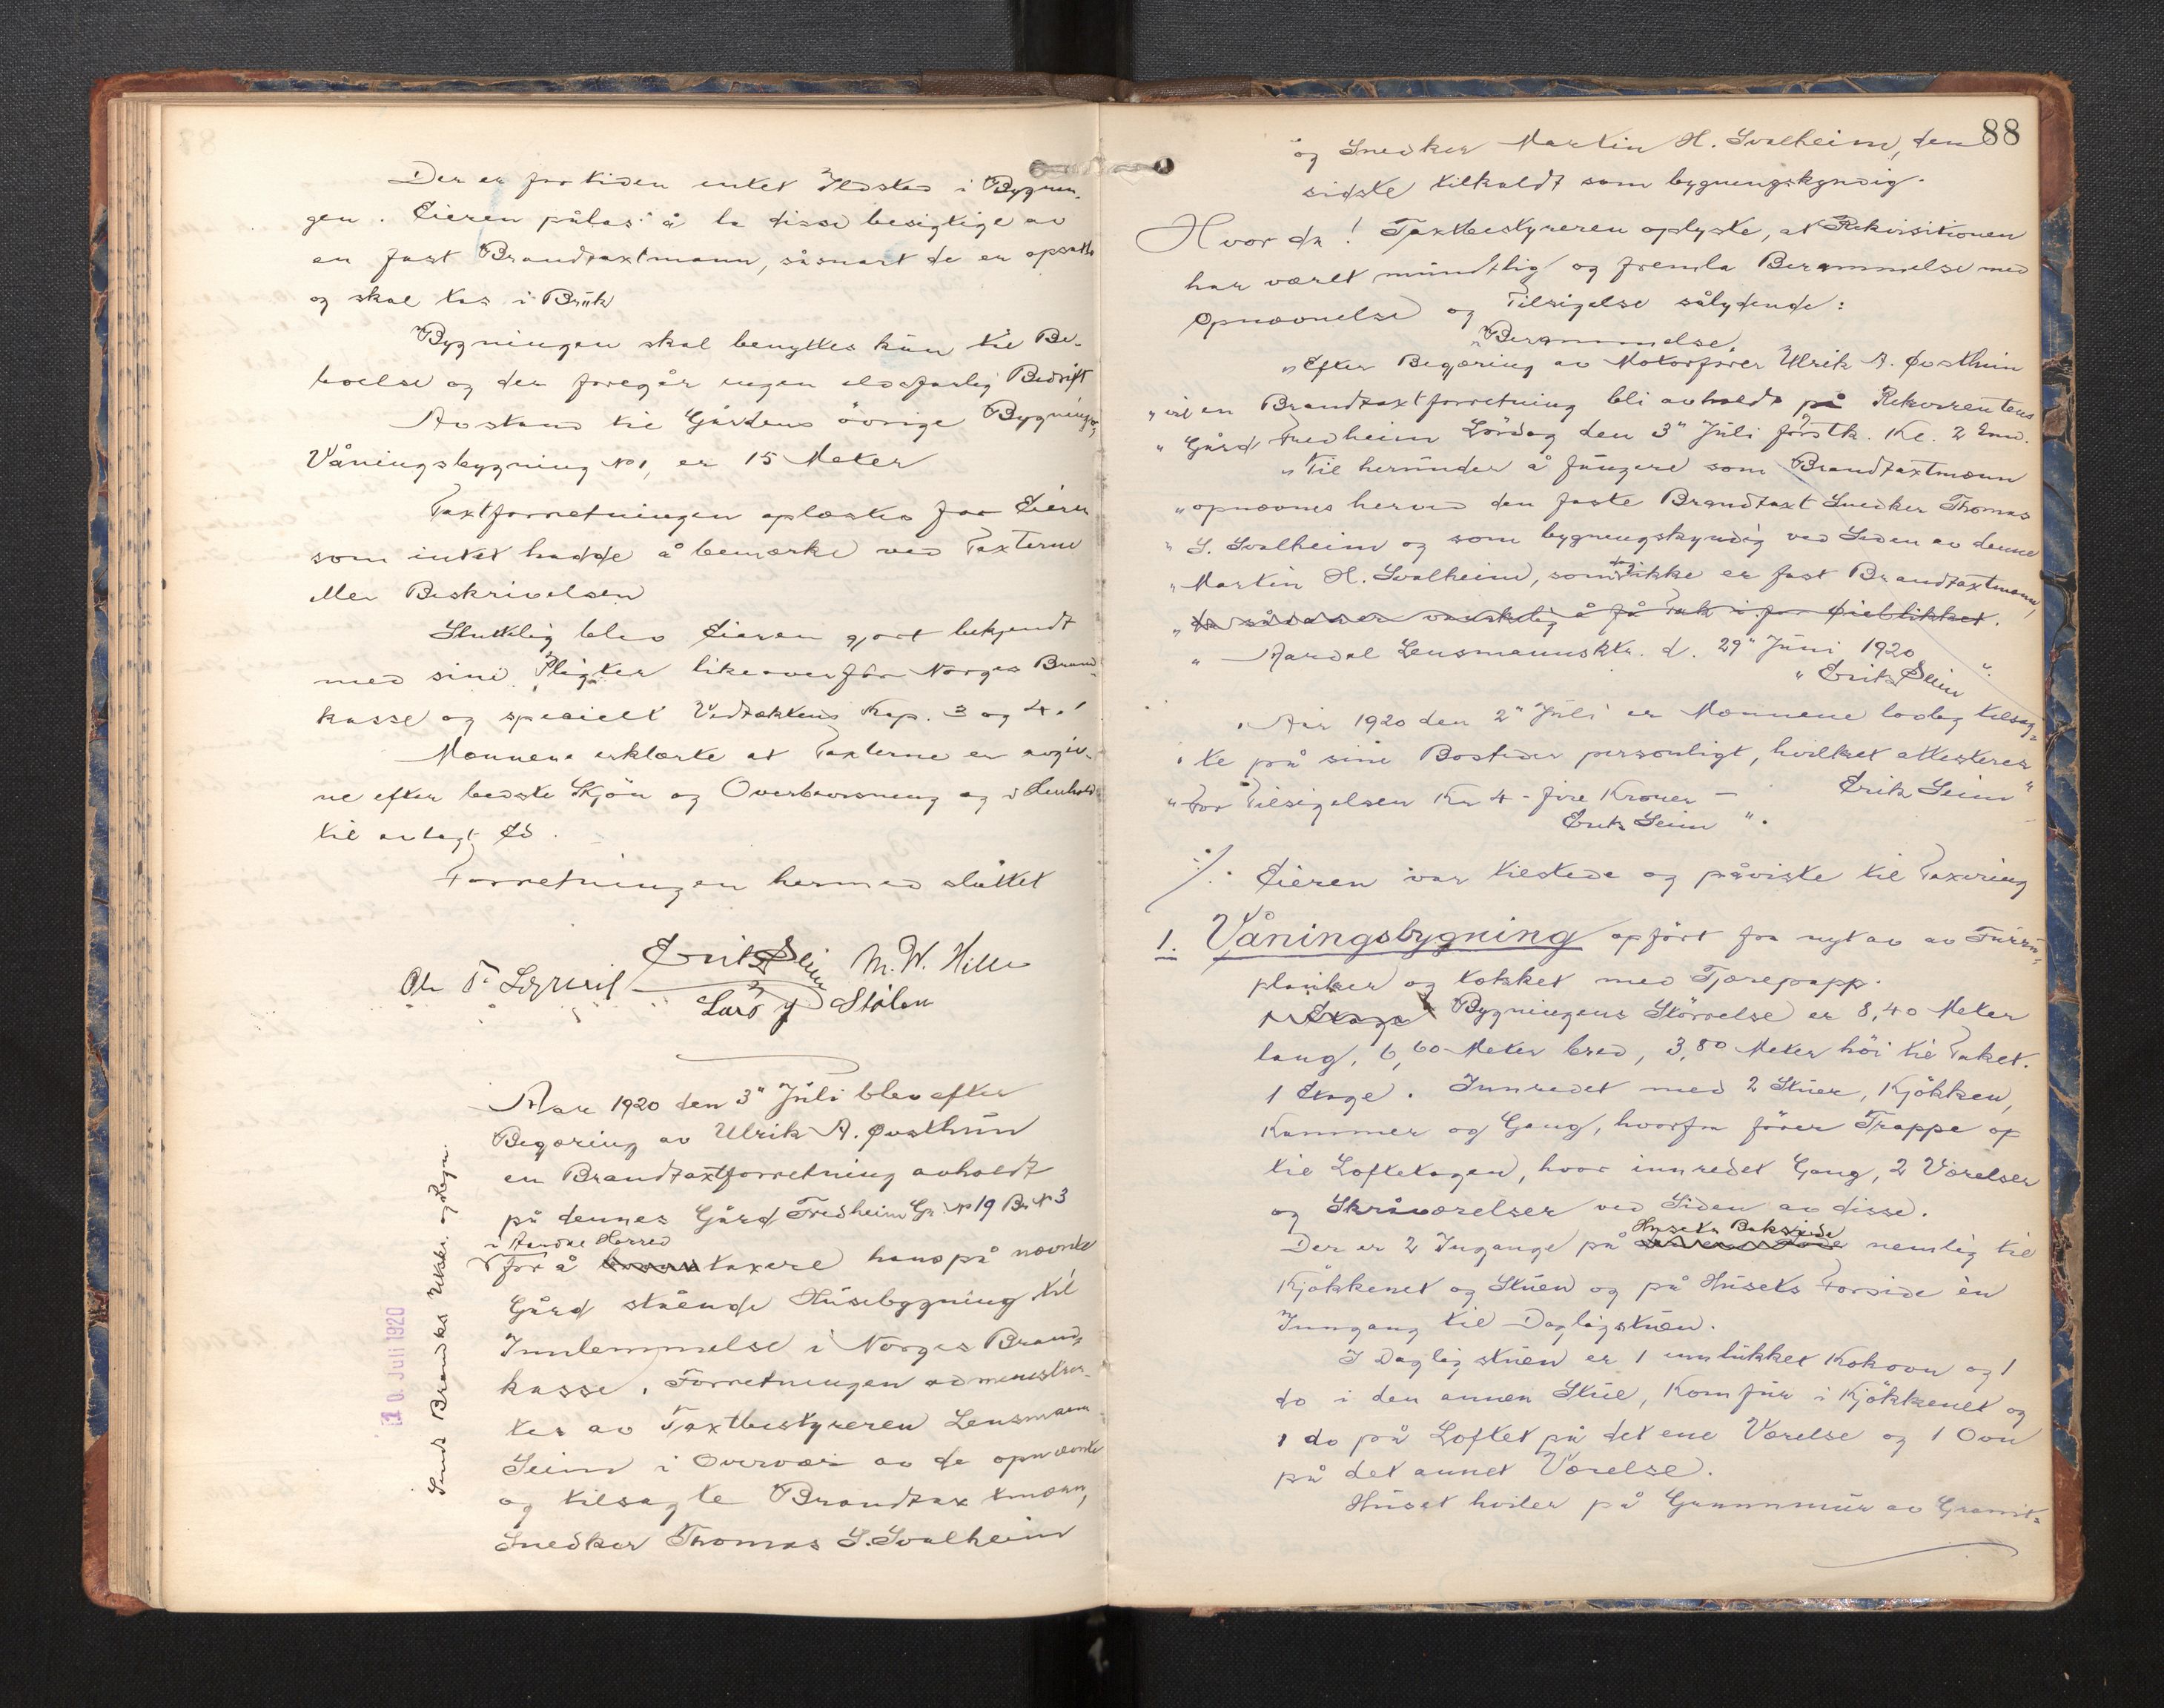 Der er for tiden intet Ildsted i Bygnin-
gen. Eieren pålas å la disse besigtige av
en fast Brandtaxtmann, såsnart de er opsatte
og skal tas i Brük
Bygningen skal benyttes kün til Be-
boelse og der foregår ingen ildsfarlig Bedrift
Avstand til Gårdens övrige Bygninger,
Våningsbygning No 1, er 15 Meter
Taxtforretningen oplæstes for Eieren
som intet hadde å bemærke ved Taxterne
eller Beskrivelsen
Sluttelig blev Eieren gjort bekjendt
med sine Pligter likeoverfor Norges Brand-
kasse og specielt Vedtæktens Kap. 3 og 4.!
Mænnene erklærte at Taxterne er avgiv-
ne efter bedste Skjön og Overbevisning og i Henhold
til avlagt Ed.
Forretningen hermed slüttet
Erik Seim M. W. Hille
Ole T.
Lars J Stölen
Aar 1920 den 3" Jüli blev efter
Begæring av Ulrik A. Øvsthün
en Brandtaxtforretning avholdt
på dennes Gård Fredheim Gr. No 19 Br. No 3
i Aardal Herred
for å taxere hans på nævnte
Gård stående Hüsebygning til
Innlemmelse i Norges Brand-
kasse. Forretningen administrer-
tes av Taxtbestyreren Lensmann
Seim i Overvær av de opnævnte
og tilsagte Brandtaxtmænn,
Snedker Thomas S. Svalheim
Sendt Brandks Utskr. og Regn.
20. Juli 1920
88
og Snedker Martin H. Svalheim, den
sidste tilkaldt som bygningskyndig.
Hvorda! Taxtbestyreren oplyste, at Rekvisitionen
har været mündtlig og fremla Berammelse med
Opnævnelse og Tilsigelse sålydende:
Berammelse.
"Efter Begjæring av Motorförer Ulrik A. Øvsthün
"vil en Brandtaxtforretning bli avholdt på Rekvirentens
"Gård Fredheim Lördag den 3" Jüli förstk. Kl. 2 Emd.
"Til heründer å füngere som Brandtaxtmænn
"opnævnes herved den faste Brandtaxt Snedker Thomas
"S. Svalheim og som bygningskyndig ved Siden av denne
"Martin H. Svalheim, som dog ikke er fast Brandtaxtmann,
"da sådan er vanskelig å få Tak i for Øieblikket.
" Aardal Lensmannsktr. d. 29" Jüni 1920
" Erik Seim ".
"Aar 1920 den 2" Jüli er Mænnene lovlig tilsag-
"te på sine Bosteder personligt, hvilket attesteres
Erik Seim "
"For Tilsigelsen Kr 4 - fire Kroner –
Erik Seim ".
./. Eieren var tilstede og påviste til Taxering
1. Våningsbygning opfört fra nyt av av Fürrü-
planker og tækket med Tjærepapp.
Bygningens Störrelse er 8,40 Meter
lang, 6,60 Meter bred, 3,80 Meter höi til Taket.
1 Etage. Innredet med 2 Stüer, Kjökken,
Kammer og Gang, hvorfra förer Trappe op
til Loftetagen, hvor innredet Gang, 2 Værelser
og Skråværelser ved Siden av disse.
Husets Bakside
Der er 2 Ingange på nemlig til
Kjökkenet og Stüen og på Hüsets Forside èn
Inngang til Dagligstüen.
I Dagligstüen er 1 innlükket Kokovn og 1
do i den annen Stüe, Komfür i Kjökkenet og
1 do på Loftet på det ene Værelse og 1 Ovn
på det annet Værelse.
Hüset hviler på Grunnmür av Granit-